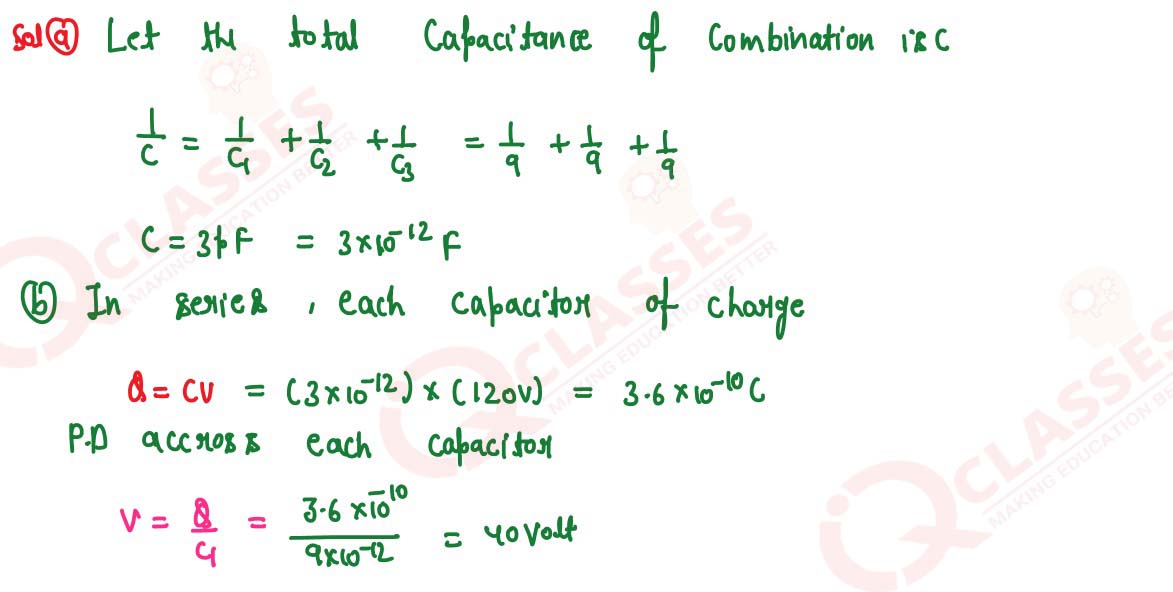 Sol (a) Let the total Capacitance of Combination is C
1/C = 1/C1 + 1/C2 + 1/C3 = 1/9 + 1/9 + 1/9
C = 3pF = 3×10^-12 F
(b) In series, each capacitor of charge
Q = CV = (3×10^-12) × (120V) = 3.6×10^-10 C
P.D accross each capacitor
V = Q/C1 = 3.6×10^-10/9×10^-12 = 40 Volt
iQ CLASSES
MAKING EDUCATION BETTER
iQ CLASSES
MAKING EDUCATION BETTER
iQ CLASSES
MAKING EDUCATION BETTER